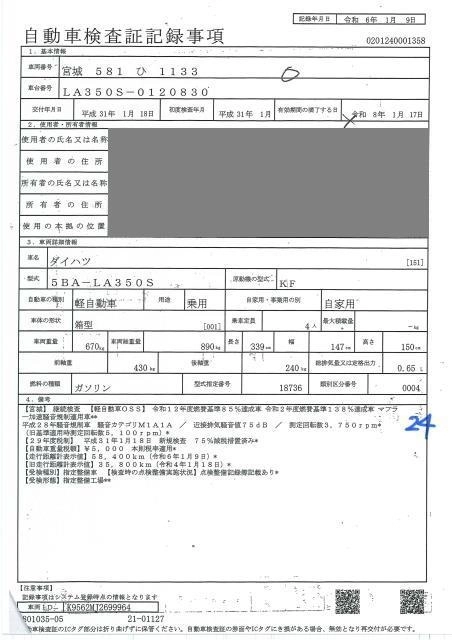 記録年月日 令和 6年 1月 9日
自動車検査証記録事項
0201240001358
1. 基本情報
車両番号 宮城 581 ひ 1133
車台番号 LA350S-0120830
交付年月日 平成 31年 1月 18日 初度検査年月 平成 31年 1月 有効期間の満了する日 令和 8年 1月 17日
2. 使用者・所有者情報
使用者の氏名又は名称
使用者の住所
所有者の氏名又は名称
所有者の住所
使用の本拠の位置
3. 車両詳細情報
車名 ダイハツ [151]
型式 5BA-LA350S 原動機の型式 KF
自動車の種別 軽自動車 用途 乗用 自家用・事業用の別 自家用
車体の形状 箱型 [001] 乗車定員 4人 最大積載量 -kg
車両重量 670kg 車両総重量 890kg 長さ 339cm 幅 147cm 高さ 150cm
前軸重 430kg 後軸重 240kg 総排気量又は定格出力 0.65 L
燃料の種類 ガソリン 型式指定番号 18736 類別区分番号 0004
4. 備考
【宮城】 継続検査 【軽自動車OSS】 令和12年度燃費基準85%達成車 令和2年度燃費基準138%達成車 マフラ
ー加速騒音規制適用車**
平成28年騒音規制車 騒音カテゴリM1A1A / 近接排気騒音値75dB / 測定回転数3,750rpm*
(旧基準適用時測定回転数5,100rpm)*
【29年度税制】 平成31年1月18日 新規検査 75%減税措置済み*
【自動車重量税額】¥5,000 本則税率適用*
【走行距離計表示値】58,400km(令和6年1月9日)*
【旧走行距離計表示値】35,800km(令和4年1月18日)*
【受検種別】指定整備車 【検査時の点検整備実施状況】点検整備記録簿記載あり*
【受検形態】指定整備工場**
24
【注意事項】
記録事項はシステム登録時点の情報となります
車両ID K9562MJ2699964
801035-05 21-01127
自動車検査証のICタグ部分は折り曲げずに保管ください。自動車検査証の券面やICタグにき損がある場合、無効となり再交付が必要です。